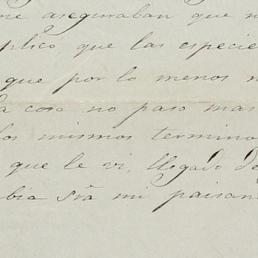 me aseguraban que n
plico, que las especie
que por lo menos n
la cosa no paso mas
los mismos termino
que le vi, llegado de
bia Srã mi paisan